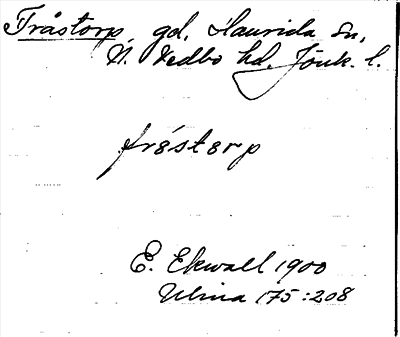 Tråstorp, gd, Haurida sn,
N. Vedbo hd. Jönk. l.
fróstorp
E. Ekwall 1900
Ulma 175:208